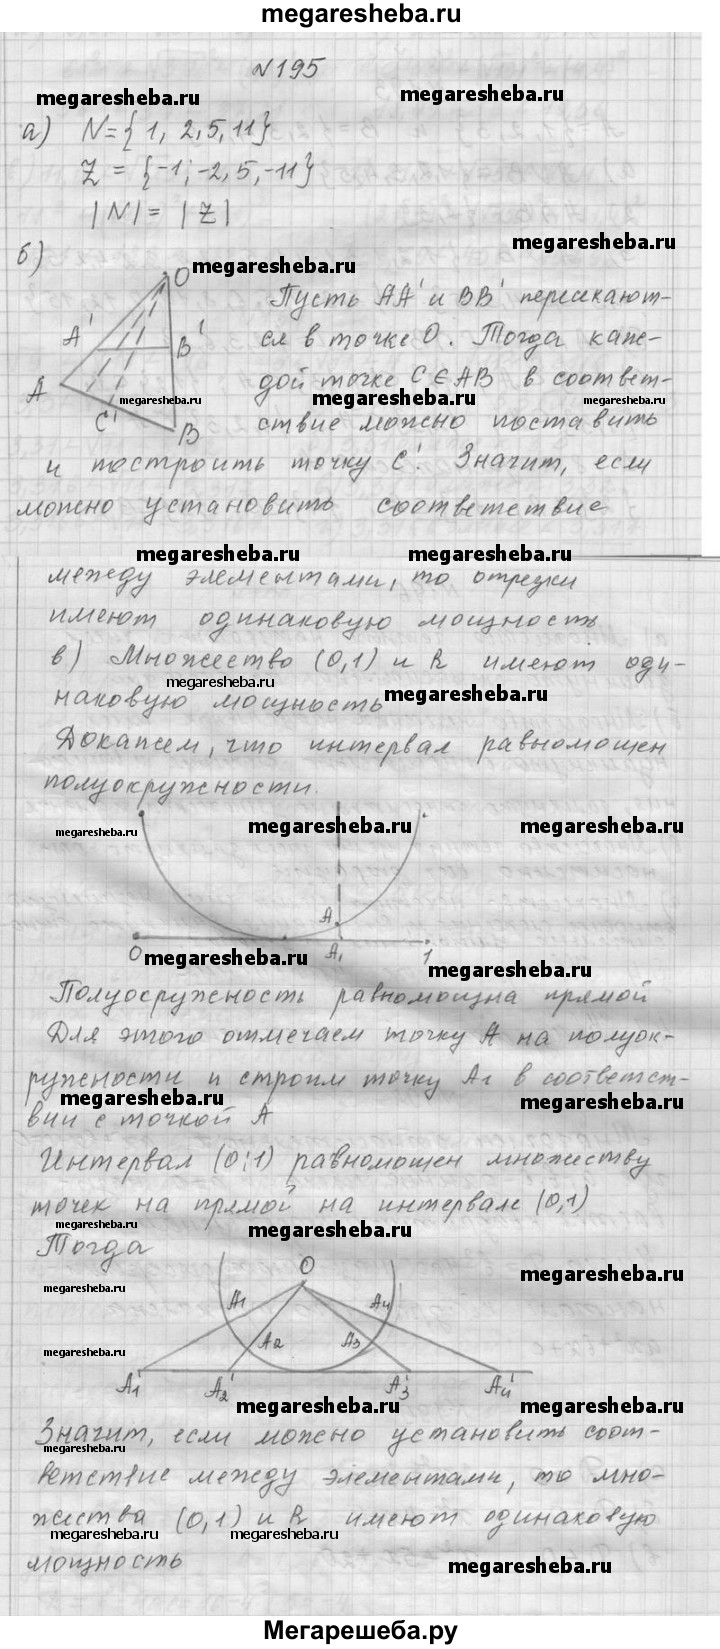 megaresheba.ru
N195
megaresheba.ru
megaresheba.ru
а) N={1, 2,5,11}
Z = {-1;-2,5,-11}
|N|= |Z|
megaresheba.ru
б)
megaresheba.ru
O
Пусть AA' и BB' пересекают-
A'
B'
ся в точке O. Тогда каж-
дой точке C∈AB в соответ-
A
megaresheba.ru
megaresheba.ru
megaresheba.ru
C'
B
ствие можно поставить
и построить точку C'. Значит, если
можно установить соответствие
megaresheba.ru
megaresheba.ru
между элементами, то отрезки
имеют одинаковую мощность
в) Множество (0,1) и R имеют оди-
megaresheba.ru
megaresheba.ru
наковую мощность
Докажем, что интервал равномощен
полуокружности.
megaresheba.ru
megaresheba.ru
megaresheba.ru
A
0
A₁
1
megaresheba.ru
megaresheba.ru
Полуосружность равномощна прямой
Для этого отмечаем точку A на полуок-
ружности и строим точку A₁ в соответст-
megaresheba.ru
megaresheba.ru
вии с точкой A
Интервал (0;1) равномощен множеству
точек на прямой на интервале (0,1)
megaresheba.ru
megaresheba.ru
Тогда
O
megaresheba.ru
megaresheba.ru
A1
A2
A3
A4
megaresheba.ru
A1'
A2'
A3'
A4'
megaresheba.ru
megaresheba.ru
Значит, если можно установить соот-
megaresheba.ru
ветствие между элементами, то мно-
жества (0,1) и R имеют одинаковую
megaresheba.ru
megaresheba.ru
мощность
megaresheba.ru
Мегарешеба.ру